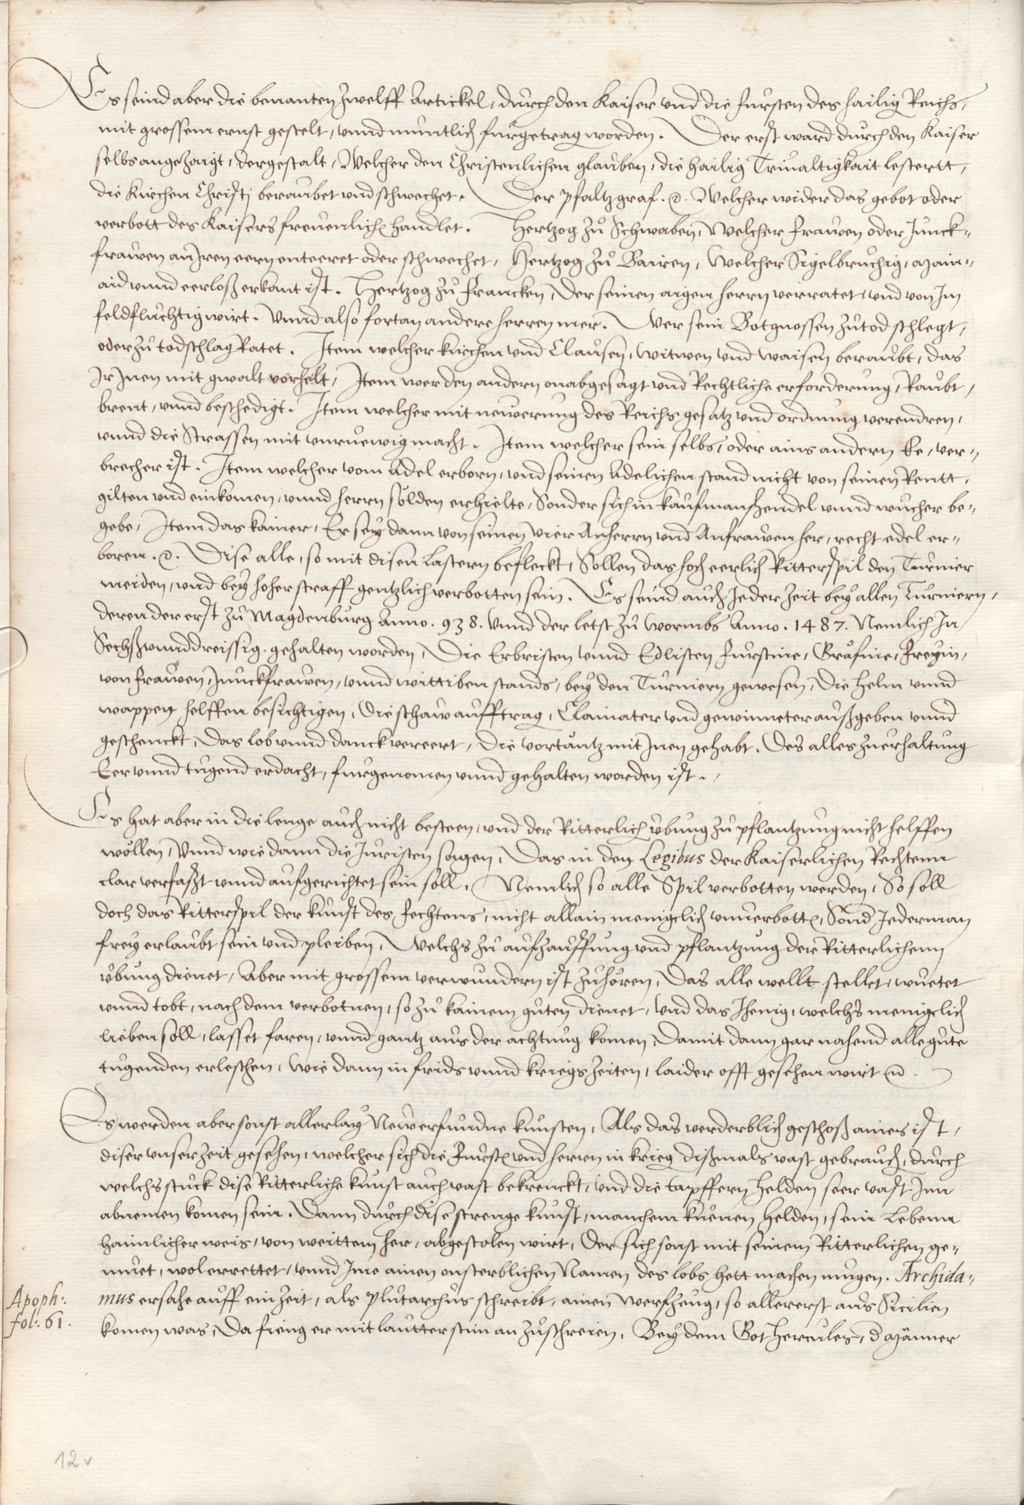 Es seind aber die benanten zwelff Artickel, durch den Kaiser und die fursten des hailig Reichs,
mit grossem ernst gestelt, unnd muntlich furgetrag worden. Der erst ward durch den Kaiser
selbs angezaigt, dergestalt, Welcher den Christenlichen glauben, die hailig Trivaltigkait lestertt,
die Kirchen Christi beraubet und schwechet. Der pfaltzgraf. Welcher wider das gebot oder
verbott des Kaisers freuenlich handlet. Hertzog zů Schwaben, Welcher frawen oder Junck-
frawen an Iren eern enteeret oder schwechet, Hertzog zů Bairen, Welcher Sigelbruchig, main-
aid unnd eerloß erkant ist. Hertzog zů francken, Der seinen aigen herrn verratet, und von Im
feldfluchtig wirt. Unnd also fortan andere herren mer. Wer sein Botgnossen zů tod schlegt,
oder zů todschlag Ratet. Item welcher kirchen und Clausen, witwen und waisen beraubt, das
Ir Inen mit gwalt vorhelt, Item wer den andern onabgesagt und Rechtliche erforderung, Raubt,
brent, unnd beschedigt. Item welcher mit newerung des Reichs gesatz und ordnung verendren,
unnd die Strassen mit unruewig macht. Item welcher sein selbs, oder ains andern Ee, ver-
brecher ist. Item welcher vom Adel erborn, und seinen Adelichen stand nicht von seinen Rentt,
gilten und einkomen, unnd herrn sölden erhielte, Sonder sich in kaufmanshendel unnd wůcher be-
gebe, Item das kainer, Er sey dann von seinen vier Anherrn und Anfrawen her, recht edel er-
boren. Dise alle, so mit disen Lastern befleckt, Sollen das hoch eerlich Ritterspil den Turnier
meiden, und bey hoher straff gentzlich verbotten sein. Es seind auch Jeder zeit bey allen Turniern,
deren der erst zů Magdenburg Anno. 938. Unnd der letst zů Wormbs Anno. 1487. Nemlich In
Sechßunnddreissig. gehalten worden, Die Erbristen unnd Edlisten furstine, Gräfine, freyin,
von frawen, Junckfrawen, unnd wittiben stands, bey den Turniern gewesen, Die helm unnd
wappen helffen besichtigen, Die schaw aufftrag, Clainater und gewinneter außgeben unnd
geschenckt, Das lob unnd danck vereert, Die vortäntz mit Inen gehabt. Des alles zu erhaltung
Eer unnd tugend erdacht, furgenomen unnd gehalten worden ist.
Es hat aber in die lenge auch nicht besteen, und der Ritterlich ubung zů pflantzung nicht helffen
wöllen, Unnd wie dann die Juristen sagen, Das in den Legibus der Kaiserlichen Rechtenn
clar verfasst unnd aufgerichtet sein soll, Nemlich so alle Spil verbotten werden, So soll
doch das Ritterspil der kunst des fechtens, nicht allain meniglich unverbott, Sond Jederman
frey erlaubt sein und pleiben, Welchs zů aufhauffung und pflantzung der Ritterlichenn
ubung dienet, Aber mit grossem verwundern ist zůhören, Das alle wellt stellet, wůetet
unnd tobt, nach dem verbotnen, so zů kainem gůten dienet, und das Jhenig, welchs menigclich
lieben soll, lasset faren, unnd gantz aus der achtung komen, Damit dann gar nahend alle gůte
tugenden erleschen, Wie dann in frids unnd kriegs zeiten, laider offt gesehen wirt
Es werden aber sonst allerlay New erfundne kunsten, Als das verderblich geschoß aines ist,
diser unser zeit gesehen, welcher sich die furst und herren in krieg dißmals vast gebrauch, durch
welchs stuck dise Ritterliche kunst auch vast bekrenckt, und die tapffern helden seer vast Inn
abnemen komen sein. Dann durch dise strenge kunst, manchem kuenen helden, sein Lebenn
haimlicher weis, von weittem her, abgestolen wirt, Der sich sonst mit seinem Ritterlichen ge-
muet, wol errettet, unnd Ime ainen unsterblichen Namen des lobs hett machen mugen. Archida-
mus ersahe auff ein zeit, als Plutarchus schreibt, ainen Werckzeug, so allererst aus Sicilien
komen was, Da fieng er mit lautter stim an zůschreien, Bey dem Got Hercules, d Männer
Apoph:.
fol:. 61.
12v